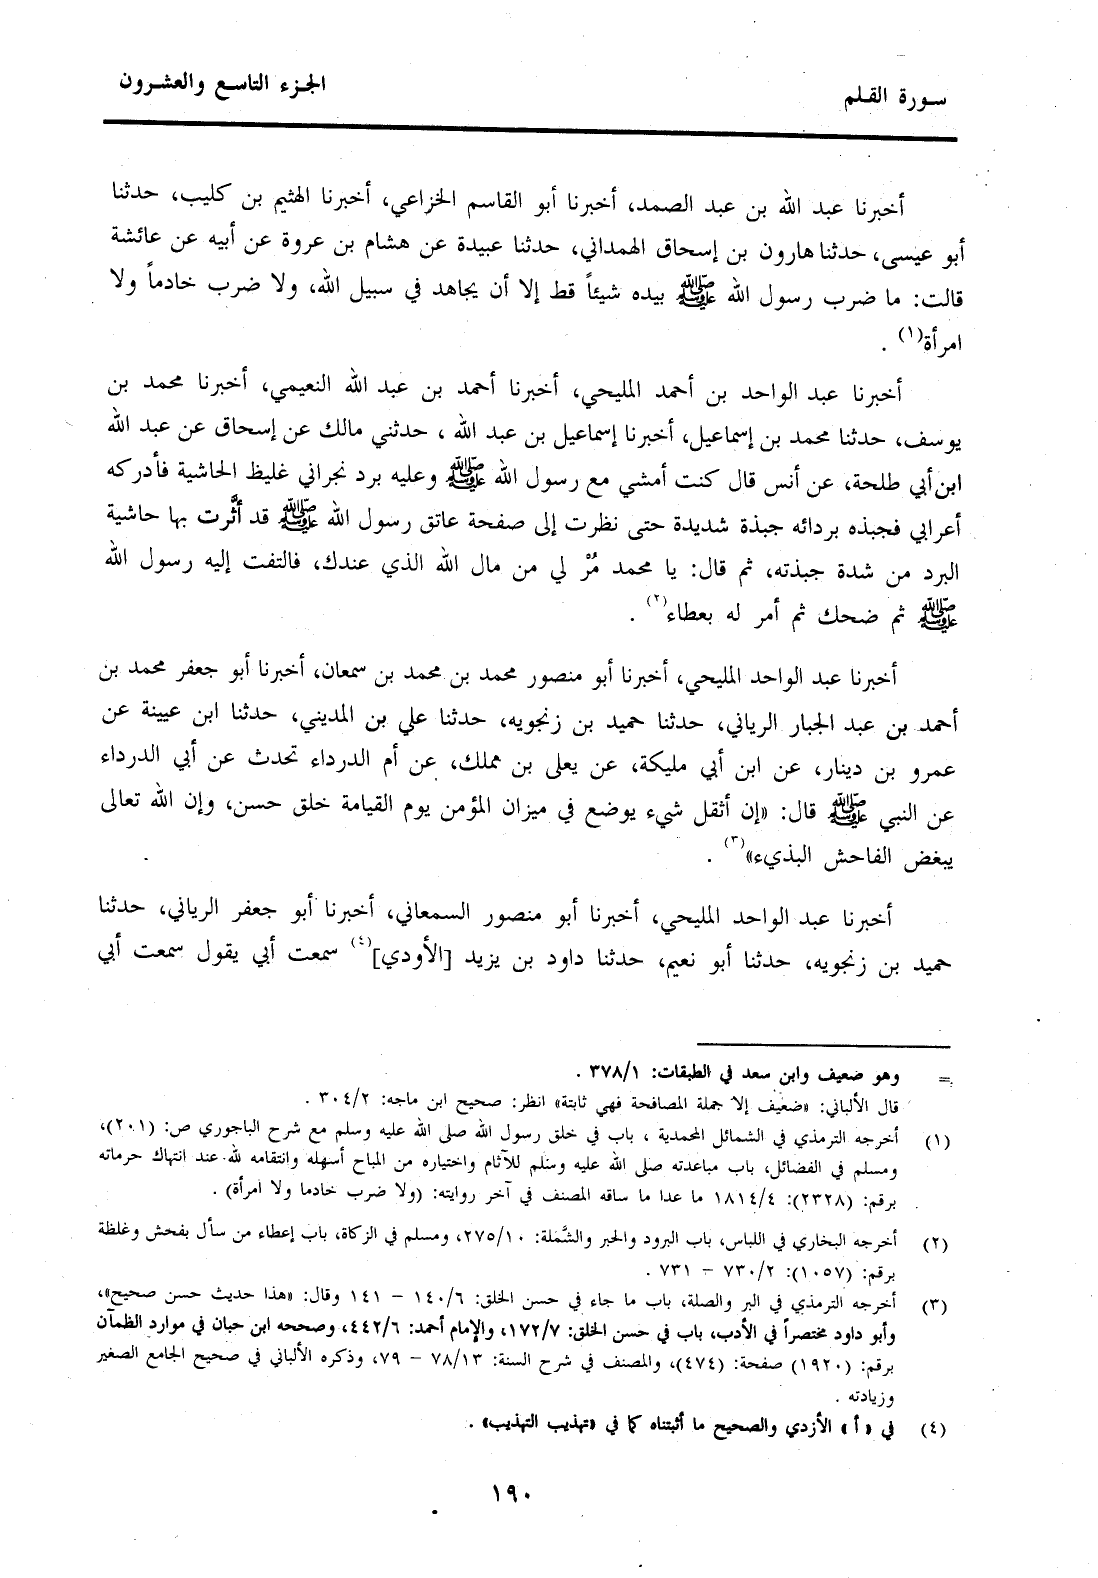 سورة القلم
الجزء التاسع والعشرون
أخبرنا عبد الله بن عبد الصمد، أخبرنا أبو القاسم الخزاعي، أخبرنا الهثيم بن كليب، حدثنا
أبو عيسى، حدثنا هارون بن إسحاق الهمداني، حدثنا عبيدة عن هشام بن عروة عن أبيه عن عائشة
قالت: ما ضرب رسول الله ﷺ بيده شيئاً قط إلا أن يجاهد في سبيل الله، ولا ضرب خادماً ولا
امرأة(١) .
أخبرنا عبد الواحد بن أحمد المليحي، أخبرنا أحمد بن عبد الله النعيمي، أخبرنا محمد بن
يوسف، حدثنا محمد بن إسماعيل، أخبرنا إسماعيل بن عبد الله ، حدثني مالك عن إسحاق عن عبد الله
ابن أبي طلحة، عن أنس قال كنت أمشي مع رسول الله ﷺ وعليه برد نجراني غليظ الحاشية فأدركه
أعرابي فجبذه بردائه جبذة شديدة حتى نظرت إلى صفحة عاتق رسول الله ﷺ قد أثَّرت بها حاشية
البرد من شدة جبذته، ثم قال: يا محمد مُرْ لي من مال الله الذي عندك، فالتفت إليه رسول الله
ﷺ ثم ضحك ثم أمر له بعطاء(٢) .
أخبرنا عبد الواحد المليحي، أخبرنا أبو منصور محمد بن محمد بن سمعان، أخبرنا أبو جعفر محمد بن
أحمد بن عبد الجبار الرياني، حدثنا حميد بن زنجويه، حدثنا علي بن المديني، حدثنا ابن عيينة عن
عمرو بن دينار، عن ابن أبي مليكة، عن يعلى بن مملك، عن أم الدرداء تحدث عن أبي الدرداء
عن النبي ﷺ قال: «إن أثقل شيء يوضع في ميزان المؤمن يوم القيامة خلق حسن، وإن الله تعالى
يبغض الفاحش البذيء»(٣) .
أخبرنا عبد الواحد المليحي، أخبرنا أبو منصور السمعاني، أخبرنا أبو جعفر الرياني، حدثنا
حميد بن زنجويه، حدثنا أبو نعيم، حدثنا داود بن يزيد [الأودي](٤) سمعت أبي يقول سمعت أبي
= وهو ضعيف وابن سعد في الطبقات: ٣٧٨/١ .
قال الألباني: «ضعيف إلا جملة المصافحة فهي ثابتة» انظر: صحيح ابن ماجه: ٣٠٤/٢ .
(١) أخرجه الترمذي في الشمائل المحمدية ، باب في خلق رسول الله صلى الله عليه وسلم مع شرح الباجوري ص: (٢٠١)،
ومسلم في الفضائل، باب مباعدته صلى الله عليه وسلم للآثام واختياره من المباح أسهله وانتقامه لله عند انتهاك حرماته
برقم: (٢٣٢٨): ١٨١٤/٤ ما عدا ما ساقه المصنف في آخر روايته: (ولا ضرب خادما ولا امرأة) .
(٢) أخرجه البخاري في اللباس، باب البرود والحبر والشَّملة: ٢٧٥/١٠، ومسلم في الزكاة، باب إعطاء من سأل بفحش وغلظة
برقم: (١٠٥٧): ٧٣٠/٢ – ٧٣١ .
(٣) أخرجه الترمذي في البر والصلة، باب ما جاء في حسن الخلق: ١٤٠/٦ – ١٤١ وقال: «هذا حديث حسن صحيح»،
وأبو داود مختصراً في الأدب، باب في حسن الخلق: ١٧٢/٧، والإمام أحمد: ٤٤٢/٦، وصححه ابن حبان في موارد الظمآن
برقم: (١٩٢٠) صفحة: (٤٧٤)، والمصنف في شرح السنة: ٧٨/١٣ – ٧٩، وذكره الألباني في صحيح الجامع الصغير
وزيادته .
(٤) في «أ» الأزدي والصحيح ما أثبتناه كما في «تهذيب التهذيب» .
١٩٠